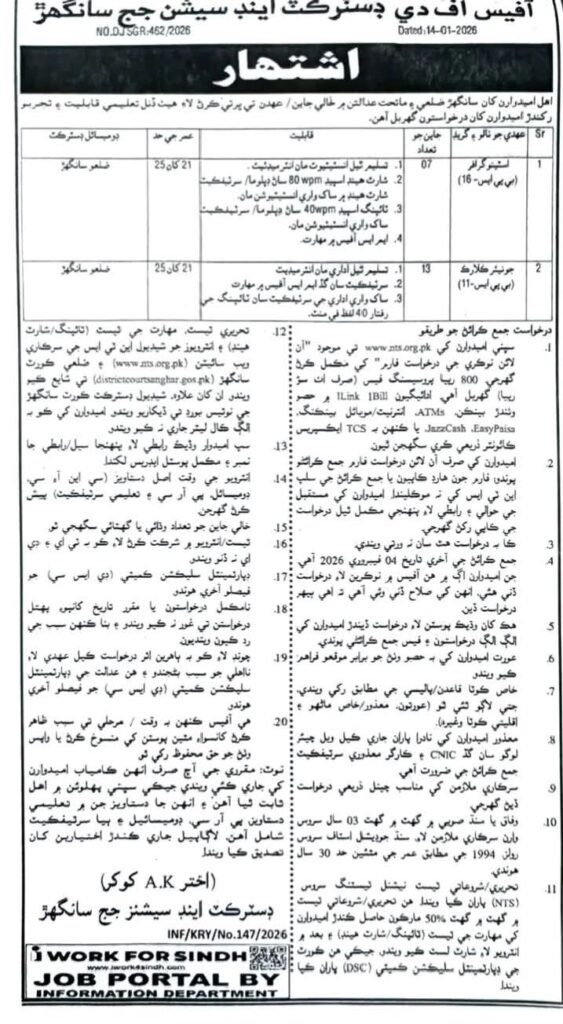 آفيس آف دي ڊسٽرڪٽ اينڊ سيشن جج سانگهڙ
NO.DJSGR:462/2026
Dated:14-01-2026
اشتهار
اهل اميدوارن کان سانگهڙ ضلعي ۾ ماتحت عدالتن ۾ خالي جاين/ عهدن تي ڀرتي ڪرڻ لاءِ هيٺ ڏنل تعليمي قابليت ۽ تجربو
رکندڙ اميدوارن کان درخواستون گهربل آهن.
Sr
عهدي جو نالو ۽ گريڊ
جاين جو تعداد
قابليت
عمر جي حد
ڊوميسائل ڊسٽرڪٽ
1
اسٽينوگرافر
(بي پي ايس-16)
07
1. تسليم ٿيل انسٽيٽيوٽ مان انٽرميڊئيٽ.
2. شارٽ هينڊ اسپيڊ 80 wpm سان ڊپلوما/ سرٽيفڪيٽ
شارٽ هينڊ ۾ ساک واري انسٽيٽيوشن مان.
3. ٽائپنگ اسپيڊ 40wpm سان ڊپلوما/ سرٽيفڪيٽ
ساک واري انسٽيٽيوشن مان.
4. ايم ايس آفيس ۾ مهارت.
21 کان 25
ضلعو سانگهڙ
2
جونيئر ڪلارڪ
(بي پي ايس-11)
13
1. تسليم ٿيل اداري مان انٽرميڊيٽ
2. سرٽيفڪيٽ سان گڏ ايم ايس آفيس ۾ مهارت
3. ساک واري اداري جي سرٽيفڪيٽ سان ٽائپنگ جي
رفتار 40 لفظ في منٽ.
21 کان 25
ضلعو سانگهڙ
درخواست جمع ڪرائڻ جو طريقو
1. سڀني اميدوارن کي www.nts.org.pk تي موجود "آن
لائن نوڪري جي درخواست فارم" کي مڪمل ڪرڻ
گهرجي. 800 رپيا پروسيسنگ فيس (صرف اٺ سؤ
رپيا) گهربل آهي. ادائيگيون 1Link 1Bill ۾ حصو
وٺندڙ بينڪن، ATMs، انٽرنيٽ/موبائل بينڪنگ،
JazzCash ،EasyPaisa يا ڪنهن به TCS ايڪسپريس
ڪائونٽر ذريعي ڪري سگهجن ٿيون.
2. اميدوارن کي صرف آن لائن درخواست فارم جمع ڪرائڻو
پوندو. فارم جون هارڊ ڪاپيون يا جمع ڪرائڻ جي سلپ
اين ٽي ايس کي نه موڪليندا. اميدوارن کي مستقبل
جي حوالي ۽ رابطي لاءِ پنهنجي مڪمل ٿيل درخواست
جي ڪاپي رکڻ گهرجي.
3. ڪا به درخواست هٿ سان نه ورتي ويندي.
4. جمع ڪرائڻ جي آخري تاريخ 04 فيبروري 2026 آهي.
جن اميدوارن اڳ ۾ هن آفيس ۾ نوڪرين لاءِ درخواست
ڏني هئي، انهن کي صلاح ڏني وڃي ٿي ته اهي ٻيهر
درخواست ڏين.
5. هڪ کان وڌيڪ پوسٽن لاءِ درخواست ڏيندڙ اميدوارن کي
الڳ الڳ درخواستون ۽ فيس جمع ڪرائڻي پوندي.
6. عورت اميدوارن کي به حصو وٺڻ جو برابر موقعو فراهم
ڪيو ويندو
7. خاص ڪوٽا قاعدن/پاليسي جي مطابق رکي ويندي،
جتي لاڳو ٿئي ٿو (عورتون، معذور/خاص ماڻهو ۽
اقليتي ڪوٽا وغيره).
8. معذور اميدوارن کي نادرا پاران جاري ڪيل ويل چيئر
لوگو سان گڏ CNIC ۽ ڪارگر معذوري سرٽيفڪيٽ
جمع ڪرائڻ جي ضرورت آهي
9. سرڪاري ملازمن کي مناسب چينل ذريعي درخواست
ڏيڻ گهرجي.
10. وفاق يا سنڌ صوبي ۾ گهٽ ۾ گهٽ 03 سال سروس
وارن سرڪاري ملازمن لاءِ، سنڌ جوڊيشل اسٽاف سروس
رولز 1994 جي مطابق عمر جي مٿئين حد 30 سال
هوندي.
11. تحريري/شروعاتي ٽيسٽ نيشنل ٽيسٽنگ سروس
(NTS) پاران ڪيا ويندا. هن تحريري/شروعاتي ٽيسٽ
۾ گهٽ ۾ گهٽ 50% مارڪون حاصل ڪندڙ اميدوارن
کي مهارت جي ٽيسٽ (ٽائپنگ/شارٽ هينڊ) ۽ بعد ۾
انٽرويو لاءِ شارٽ لسٽ ڪيو ويندو، جيڪي هن ڪورٽ
جي ڊپارٽمينٽل سليڪشن ڪميٽي (DSC) پاران ڪيا
ويندا.
12. تحريري ٽيسٽ، مهارت جي ٽيسٽ (ٽائپنگ/شارٽ
هينڊ) ۽ انٽرويوز جو شيڊيول اين ٽي ايس جي سرڪاري
ويب سائيٽن (www.nts.org.pk) ۽ ضلعي ڪورٽ
سانگهڙ (districtcourtsanghar.gos.pk) تي شايع ڪيو
ويندو. ان کان علاوه، شيڊيول ڊسٽرڪٽ ڪورٽ سانگهڙ
جي نوٽيس بورڊ تي ڏيکاريو ويندو. اميدوارن کي ڪو به
الڳ ڪال ليٽر جاري نه ڪيو ويندو
13. سڀ اميدوار وڌيڪ رابطي لاءِ پنهنجا سيل/رابطي جا
نمبر ۽ مڪمل پوسٽل ايڊريس لکندا.
14. انٽرويو جي وقت اصل دستاويز (سي اين آءِ سي،
ڊوميسائل، پي آر سي ۽ تعليمي سرٽيفڪيٽ) پيش
ڪرڻ گهرجن.
15. خالي جاين جو تعداد وڌائي يا گهٽائي سگهجي ٿو.
16. ٽيسٽ/انٽرويو ۾ شرڪت ڪرڻ لاءِ ڪو به ٽي اي ۽ ڊي
اي نه ڏنو ويندو
17. ڊپارٽمينٽل سليڪشن ڪميٽي (ڊي ايس سي) جو
فيصلو آخري هوندو
18. نامڪمل درخواستون يا مقرر تاريخ کانپوءِ پهتل
درخواستن تي غور نه ڪيو ويندو ۽ بنا ڪنهن سبب جي
رد ڪيون وينديون.
19. چونڊ لاءِ ڪو به ٻاهرين اثر درخواست ڪيل عهدي لاءِ
نااهلي جو سبب بڻجندو ۽ هن عدالت جي ڊپارٽمينٽل
سليڪشن ڪميٽي (ڊي ايس سي) جو فيصلو آخري
هوندو
20. هي آفيس ڪنهن به وقت / مرحلي تي سبب ظاهر
ڪرڻ کانسواءِ مٿين پوسٽن کي منسوخ ڪرڻ يا واپس
وٺڻ جو حق محفوظ رکي ٿو
نوٽ: مقرري جي آڇ صرف انهن ڪامياب اميدوارن
کي جاري ڪئي ويندي جيڪي سڀني پهلوئن ۾ اهل
ثابت ٿيا آهن ۽ انهن جا دستاويز جن ۾ تعليمي
دستاويز پي آر سي، ڊوميسائيل ۽ ٻيا سرٽيفڪيٽ
شامل آهن، لاڳاپيل جاري ڪندڙ اختيارين کان
تصديق ڪيا ويندا.
(اختر A.K کوکر)
ڊسٽرڪٽ اينڊ سيشنز جج سانگهڙ
INF/KRY/No.147/2026
i WORK FOR SINDH
www.iwork4sindh.com
JOB PORTAL BY
INFORMATION DEPARTMENT